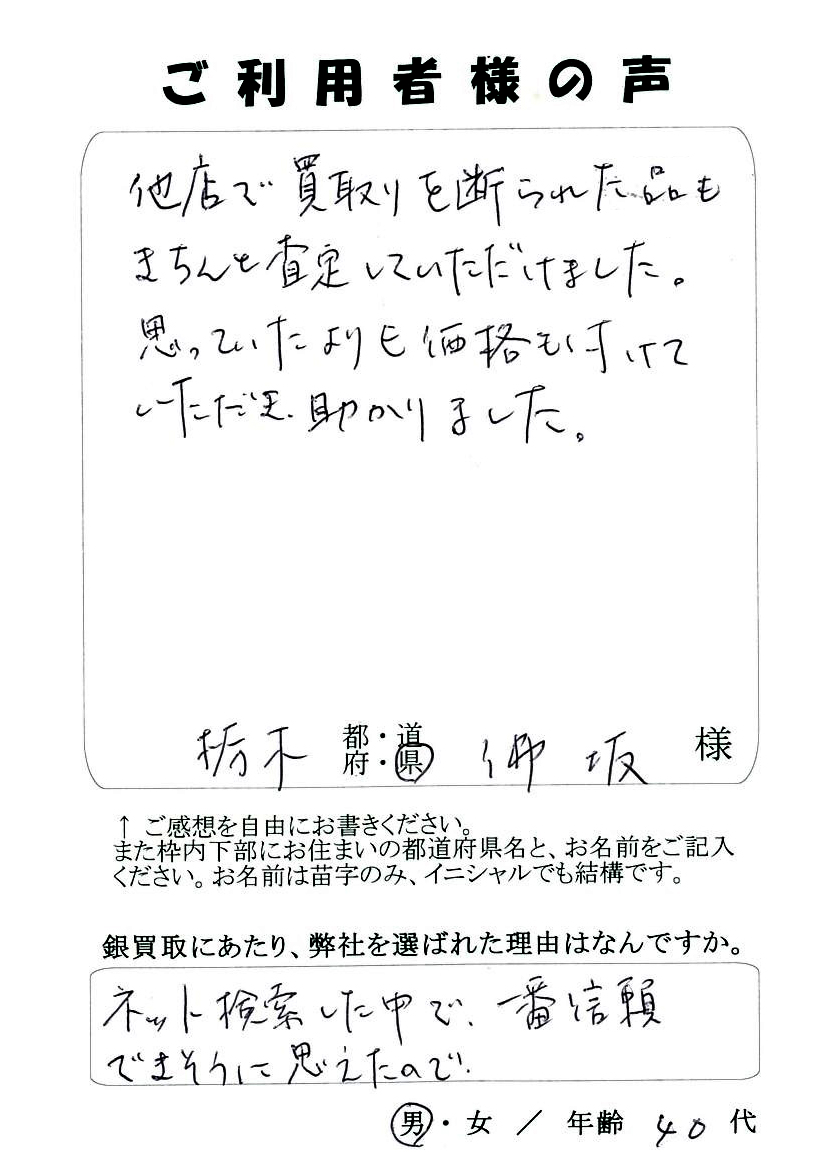 ご利用者様の声
他店で買取りを断られた品も
きちんと査定していただけました。
思っていたよりも価格も付けて
いただき、助かりました。
栃木 都・道府・県 坂 様
↑ ご感想を自由にお書きください。
また枠内下部にお住まいの都道府県名と、お名前をご記入
ください。お名前は苗字のみ、イニシャルでも結構です。
銀買取にあたり、弊社を選ばれた理由はなんですか。
ネット検索した中で、一番信頼
できそうに思えたので。
男・女 / 年齢 40 代